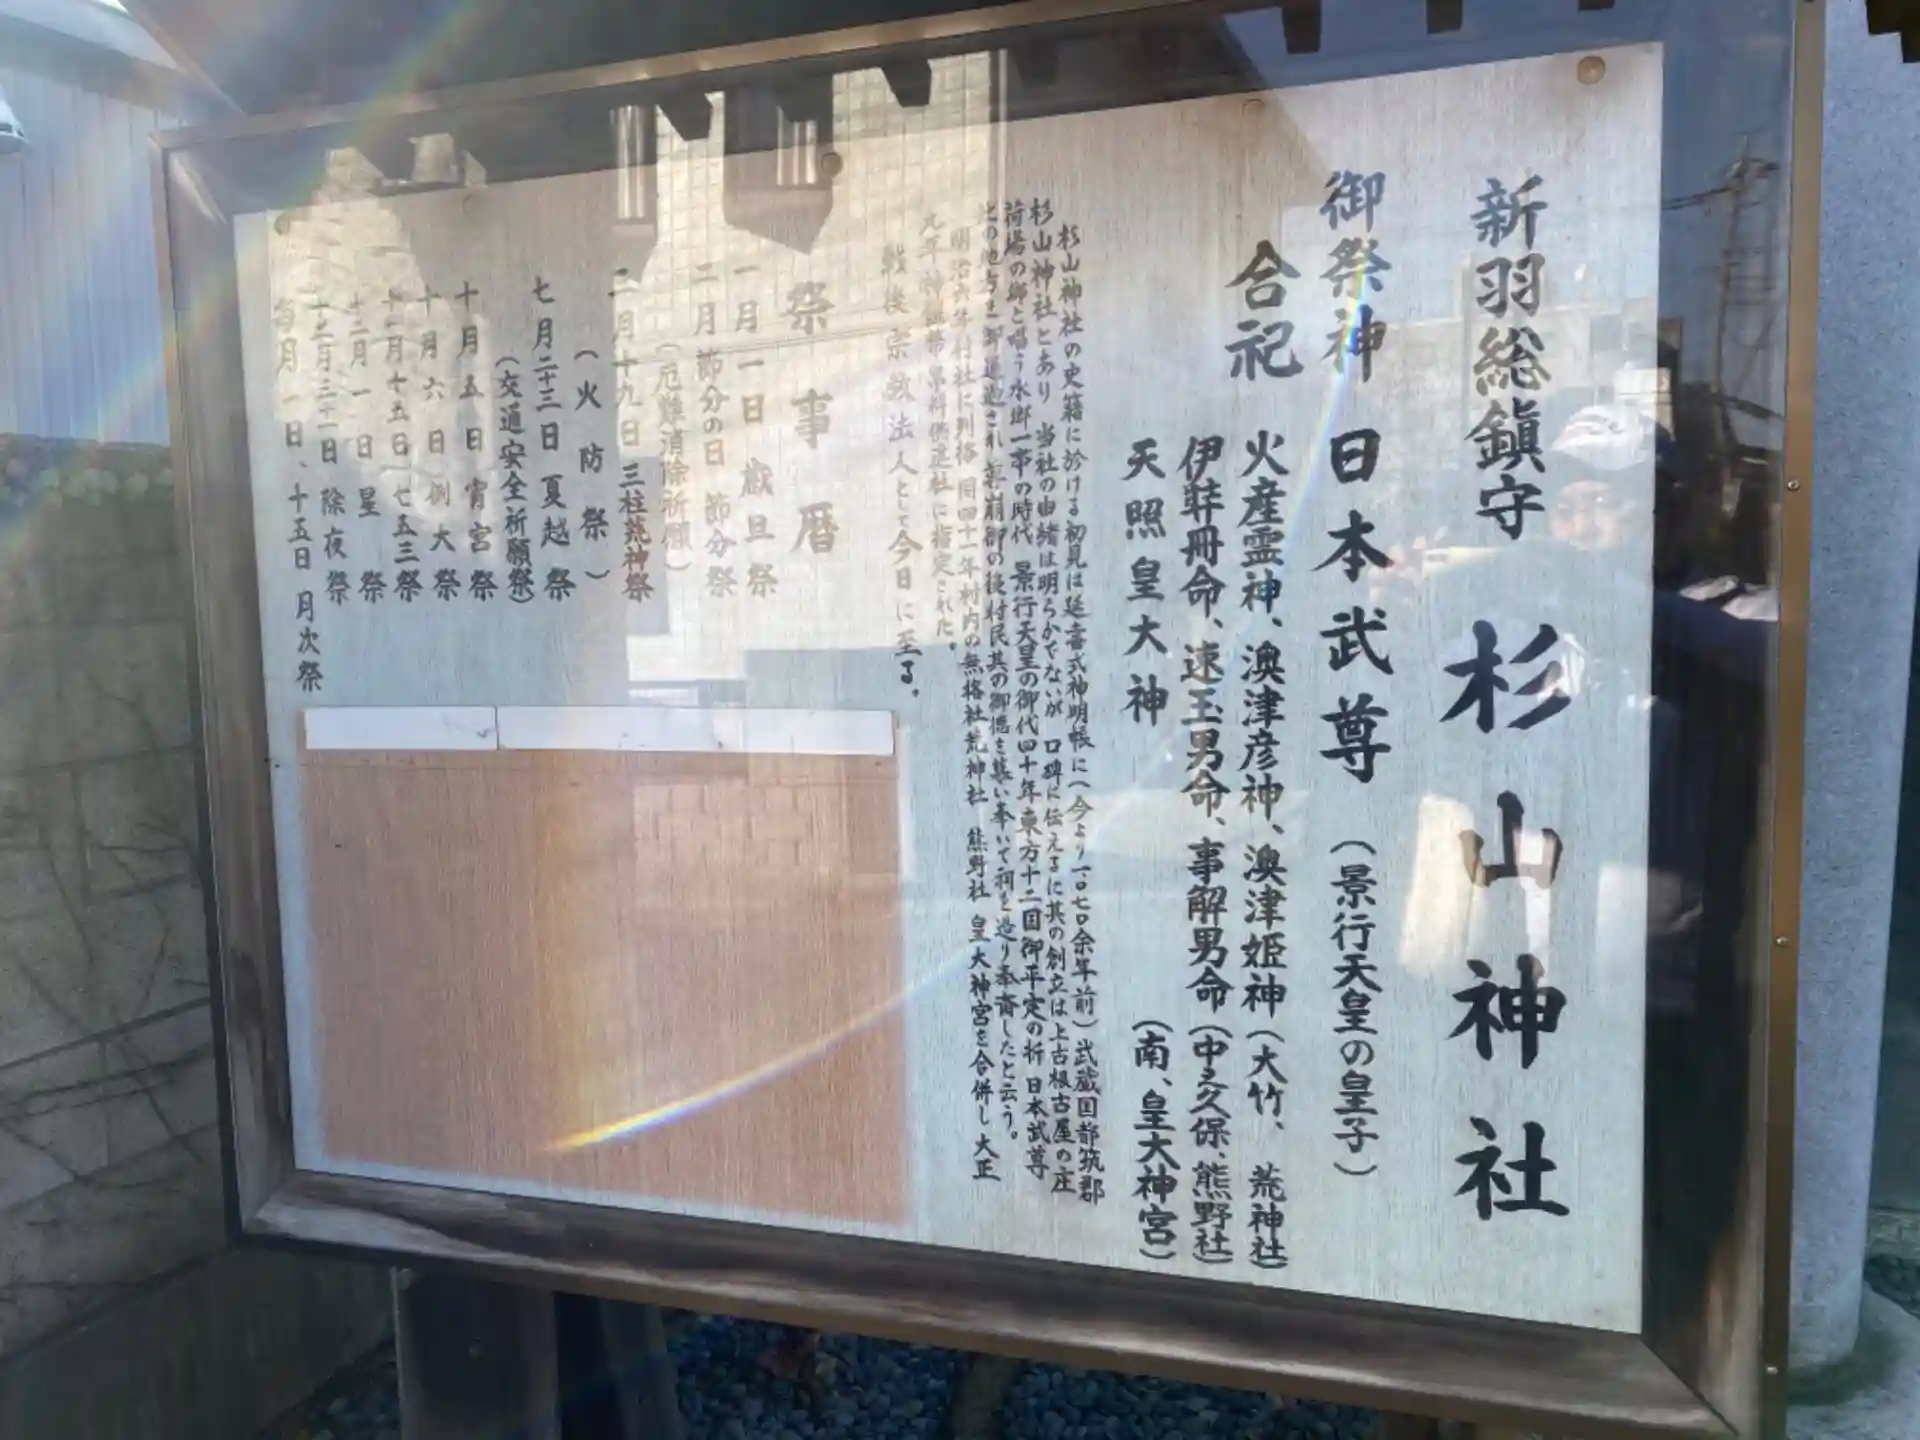 新羽総鎮守 杉山神社
御祭神 日本武尊 (景行天皇の皇子)
合祀 火産霊神、澳津彦神、澳津姫神 (大竹、荒神社)
伊弉冊命、速玉男命、事解男命 (中之久保、熊野社)
天照皇大神 (南、皇大神宮)
杉山神社の史籍に於ける初見は延喜式神明帳に(今より一〇七〇余年前)武蔵国都筑郡
杉山神社とあり 当社の由緒は明らかでないが 口碑に伝えるに其の創立は上古根古屋の庄
荷場の郷と唱う水郷一事の時代 景行天皇の御代四十年東方十二国御平定の折 日本武尊
との地方を御巡遊され 薨崩御の後村民其の御徳を慕い奉いて祠を造り奉斎したと云う。
明治六年村社に列格 同四十一年村内の無格社荒神社 熊野社 皇大神宮を合併し 大正
九年 神饌幣帛料供進社に指定された。
戦後宗教法人として今日に至る。
祭事暦
一月一日 歳旦祭
二月節分の日 節分祭
(厄難消除祈願)
二月十九日 三柱荒神祭
(火防祭)
七月二十三日 夏越祭
(交通安全祈願祭)
十月五日 宵宮祭
十月六日 例大祭
十一月十五日 七五三祭
十二月一日 星祭
十二月三十一日 除夜祭
毎月一日、十五日 月次祭